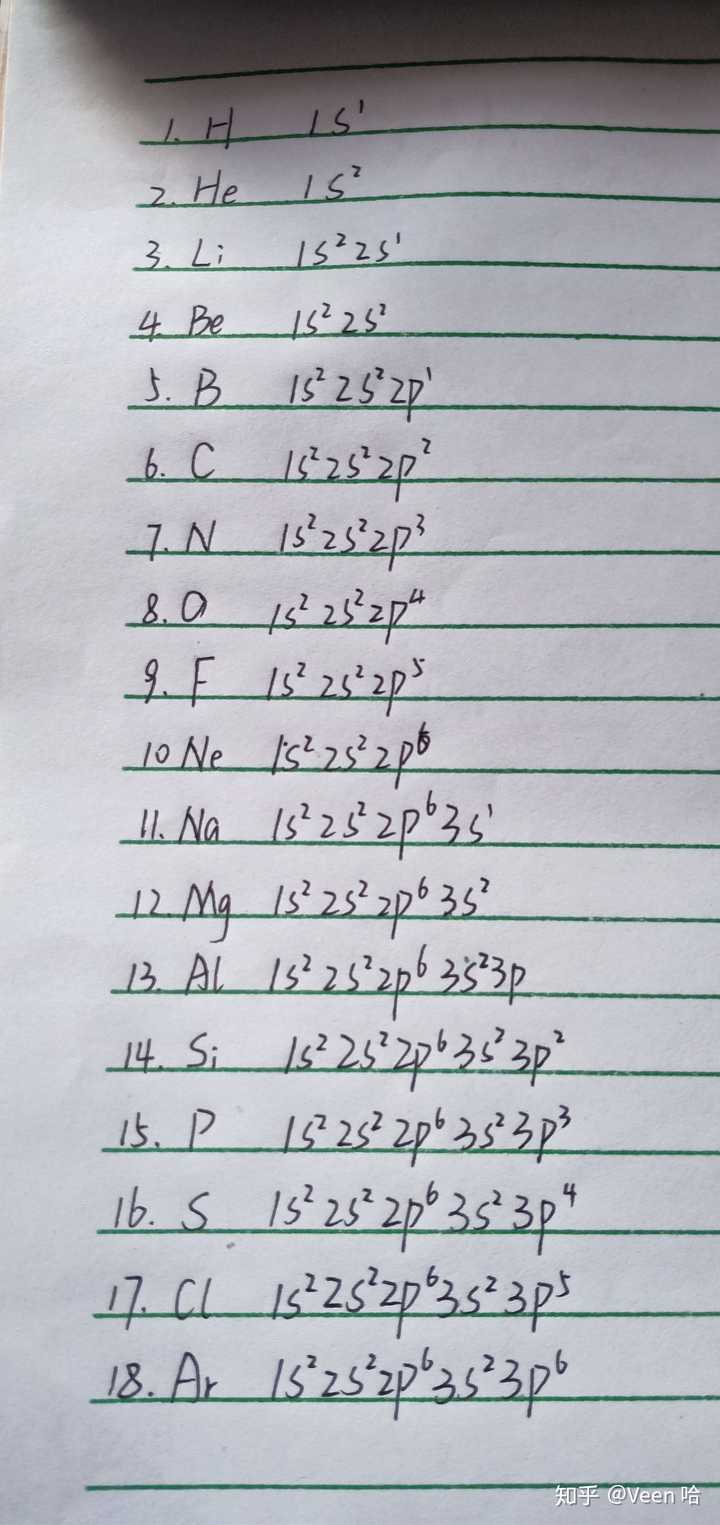 1. H 1s¹
2. He 1s²
3. Li 1s²2s¹
4 Be 1s²2s²
5. B 1s²2s²2p¹
6. C 1s²2s²2p²
7. N 1s²2s²2p³
8. O 1s²2s²2p⁴
9. F 1s²2s²2p⁵
10 Ne 1s²2s²2p⁶
11. Na 1s²2s²2p⁶3s¹
12. Mg 1s²2s²2p⁶3s²
13. Al 1s²2s²2p⁶3s²3p
14. Si 1s²2s²2p⁶3s²3p²
15. P 1s²2s²2p⁶3s²3p³
16. S 1s²2s²2p⁶3s²3p⁴
17. Cl 1s²2s²2p⁶3s²3p⁵
18. Ar 1s²2s²2p⁶3s²3p⁶
知乎 @Veen 哈